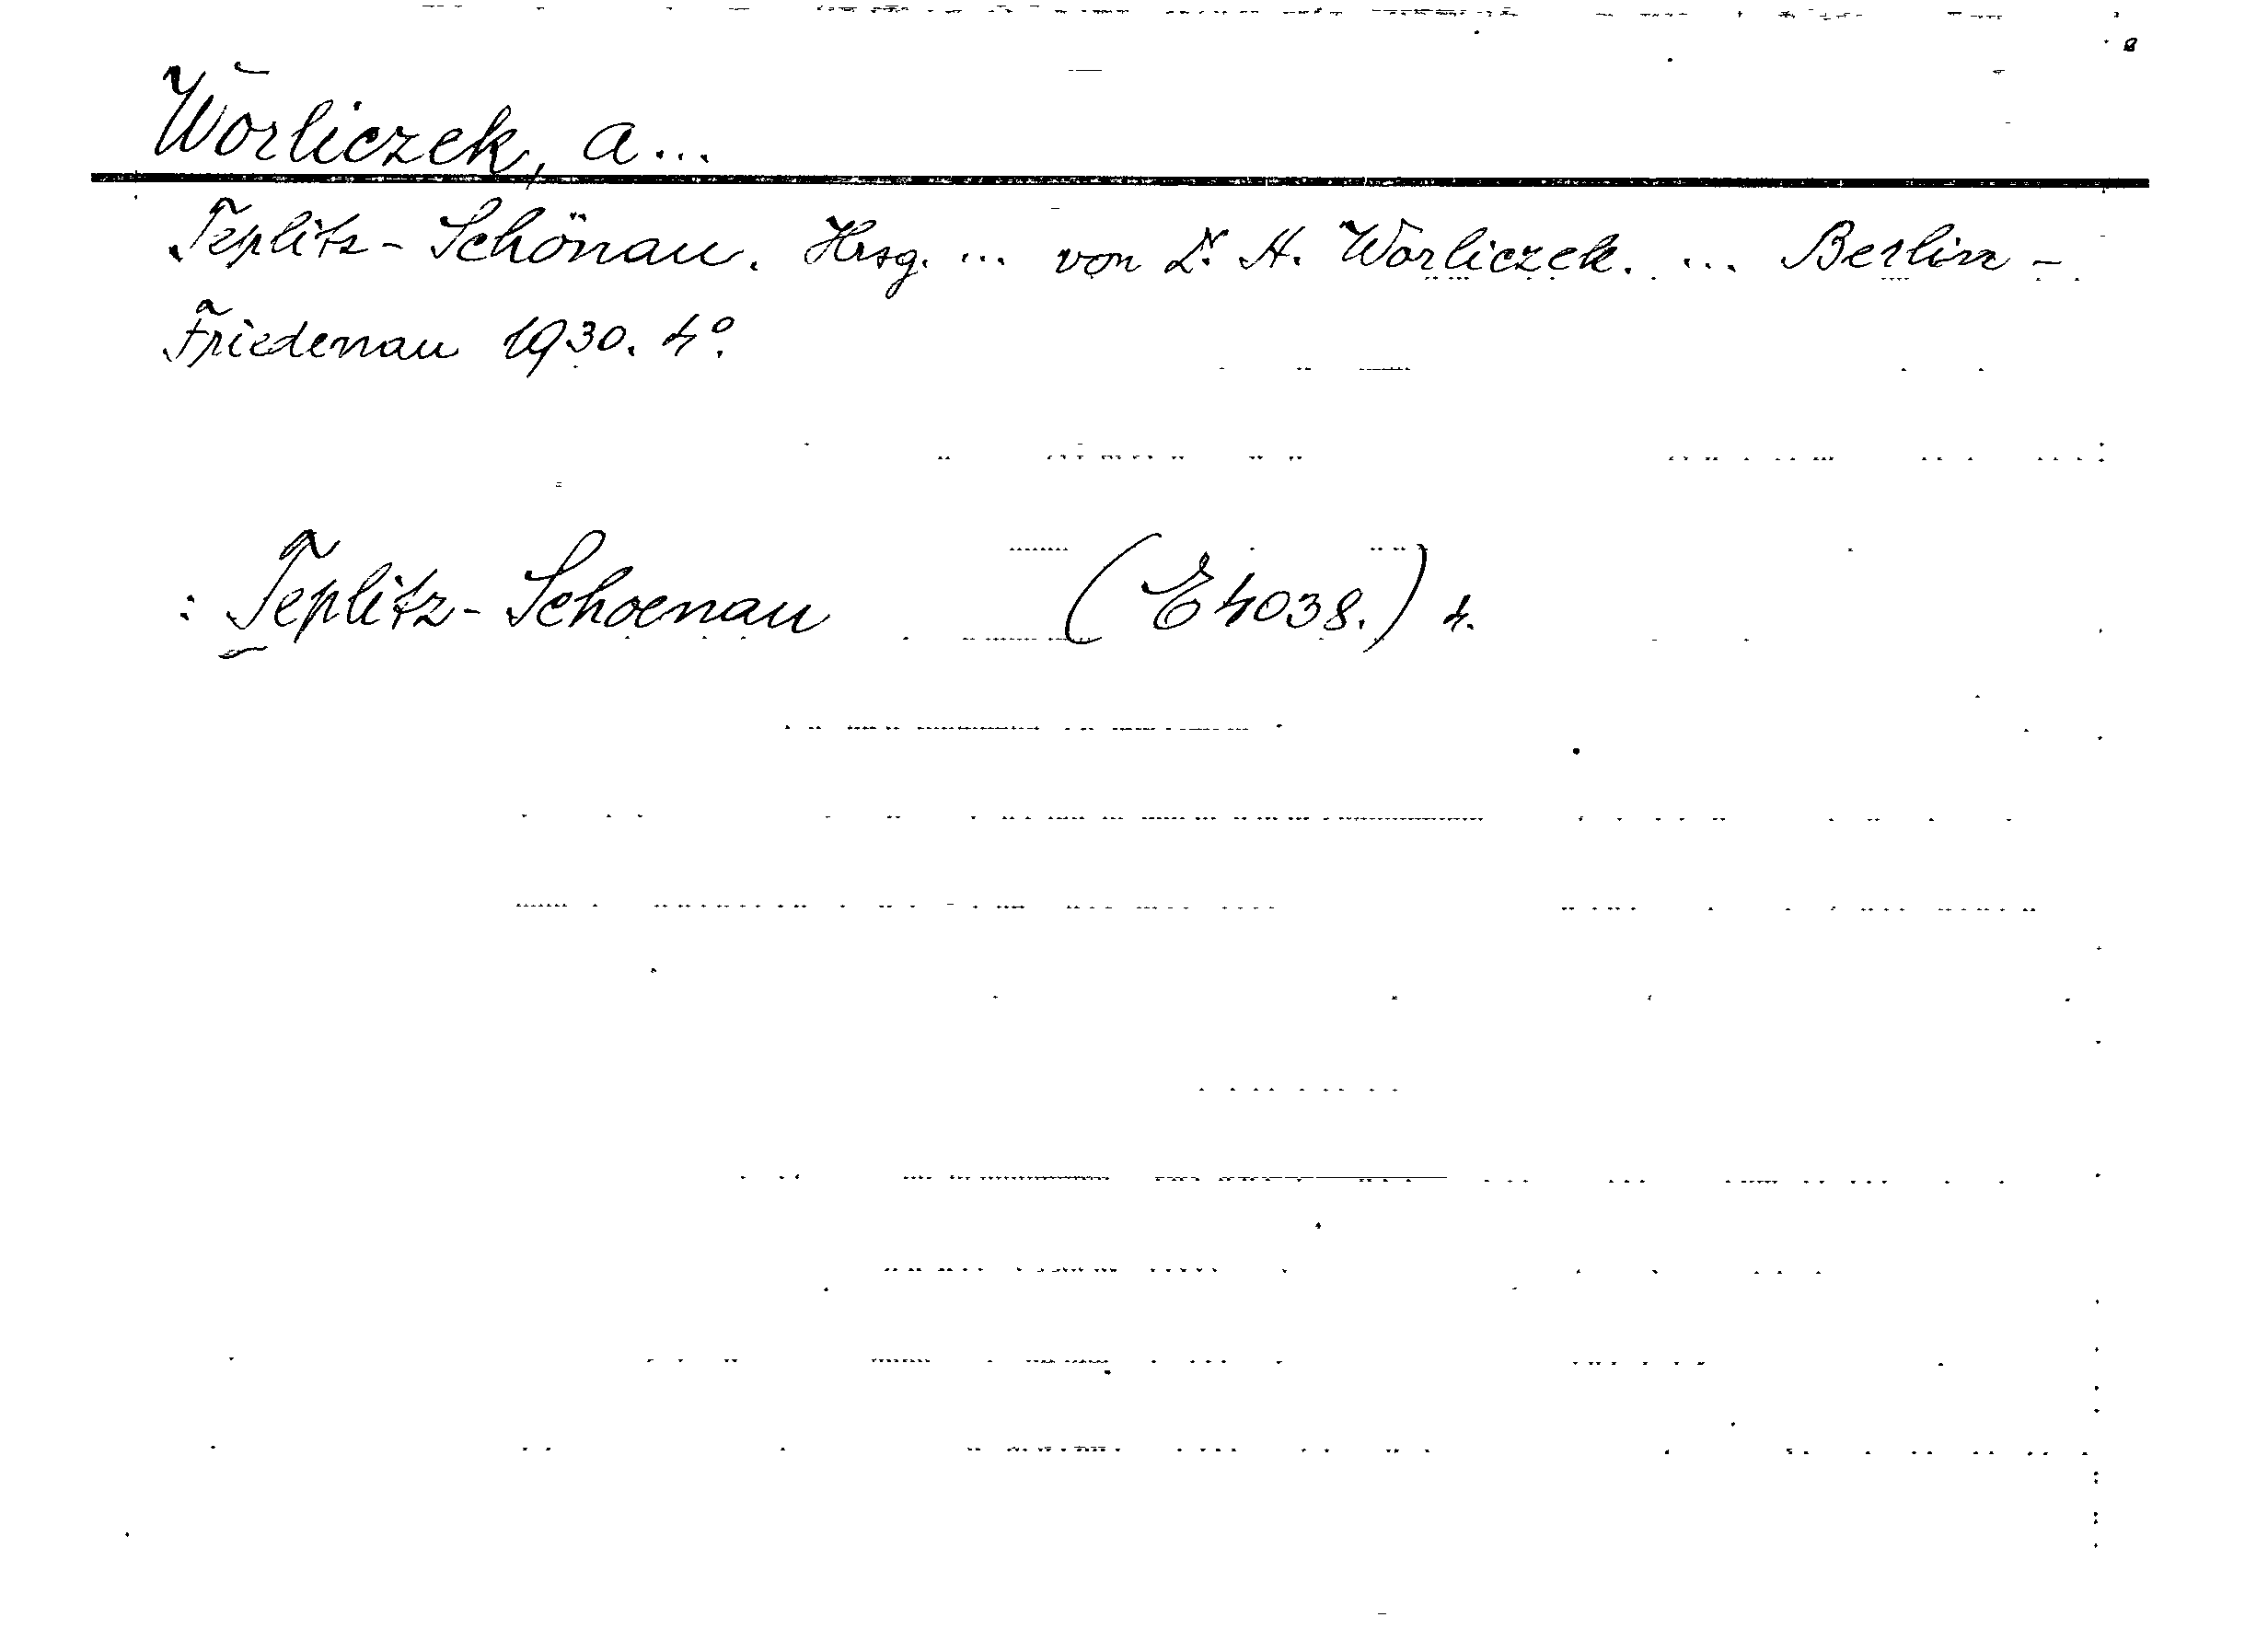 Worliczek, A...
Teplitz-Schönau. Hrsg. ... von Dr. H. Worliczek. ... Berlin-
Friedenau 1930. 4°.
: Teplitz-Schoenau (E4038.) 4.